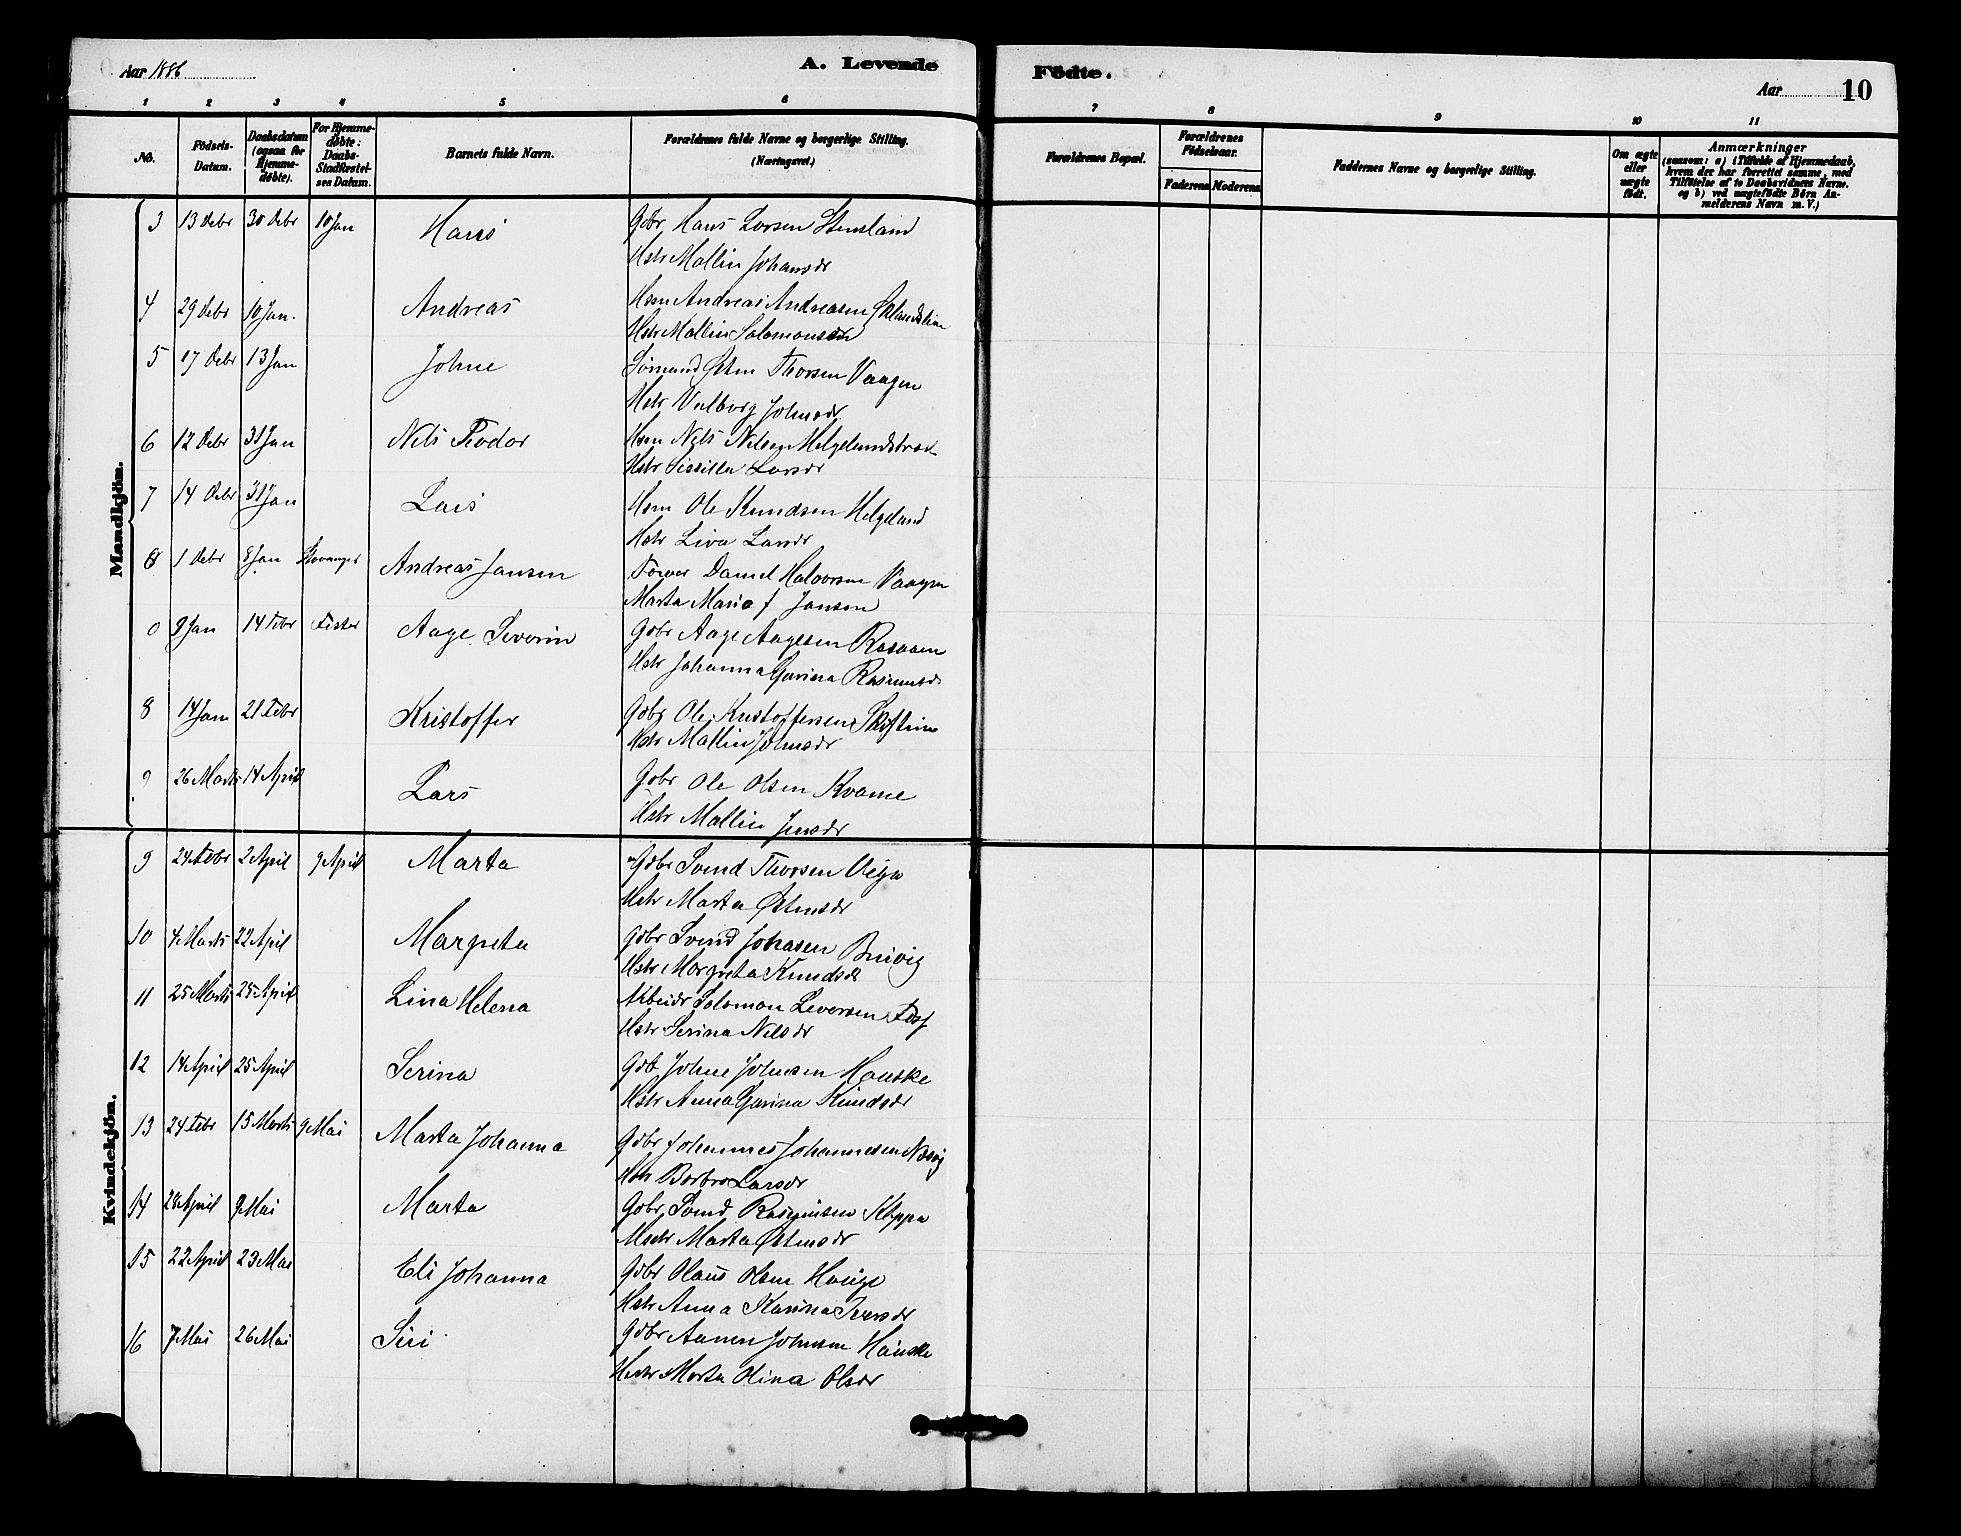 Aar 1886
A. Levende
Fødte.
Aar
10
1 2 3 4 5 6 7 8 9 10 11
No.
Fødsels-Datum.
Daabsdatum (ogsaa for Hjemmedøbte).
For Hjemmedøbte: Daabs-Stadfæstelses Datum.
Barnets fulde Navn.
Forældrenes fulde Navne og borgerlige Stilling. (Næringsvei.)
Forældrenes Bopæl.
Forældrenes Fødselsaar.
Faderens
Moderens
Faddernes Navne og borgerlige Stilling.
Om ægte eller uægte født.
Anmærkninger
(saasom: a) i Tilfælde af Hjemmedaab, hvem der har forrettet samme, med Tilføielse af to Daabsvidners Navne. og b) ved uægtefødte Børn Anmelderens Navn m. V.)
Mandkjøn.
3 13 Debr 30 Debr 10 Jan Hans Gdbr Hans Larsen Stensland
Hstr Mallin Johansdr
4 29 Debr 10 Jan. Andreas Hsm Andreas Andreasen
Hstr Mallin Salomonsdr
5 17 Debr 13 Jan Johne Sømand Østen Thorsen Vaagen
Hstr Valborg Johnsdr
6 12 Debr 31 Jan Nils Teodor Hsm Nils Nilsen
Hstr Sissilla Larsdr
7 14 Debr 31 Jan Lars Hsm Ole Knudsen Helgeland
Hstr Liva Larsdr
8 1 Debr 8 Jan Stavanger Andreas Jansen Daniel Halvorsen Vaagen
Marta Maria f Jansen
0 9 Jan 14 Febr Fister Aage Severin Gdbr Aage Aagesen
Hstr Johanna Gurina Rasmusdr
8 14 Jan 21 Febr Kristoffer Gdbr Ole Kristoffersen
Hstr Mallin Johnsdr
9 26 Marts 14 April Lars Gdbr Ole Olsen Kvame
Hstr Mallin Jensdr
Kvindekjøn.
9 24 Febr 2 April 9 April Marta Gdbr Svend Thorsen
Hstr Marta Østensdr
10 4 Marts 22 April Margreta Gdbr Svend Johnsen
Hstr Margreta Knudsdr
11 25 Marts 25 April Lina Helena Arbeidr Salomon
Hstr Serina Nilsdr
12 14 April 25 April Serina Gdb Johne Johnsen Hauske
Hstr Anna Gurina Knudsdr
13 24 Febr 15 Marts 9 Mai Marta Johanna Gdbr Johannes Johannesen
Hstr Barbro Larsdr
14 24 April 9 Mai Marta Gdbr Svend Rasmussen Kleppa
Hstr Marta Østensdr
15 22 April 23 Mai Eli Johanna Gdbr Olaus Olsen Hauge
Hstr Anna Karina Iversdr
16 7 Mai 26 Mai Siri Gdbr Aanen Johnsen Hauske
Hstr Marta Olina Olsdr